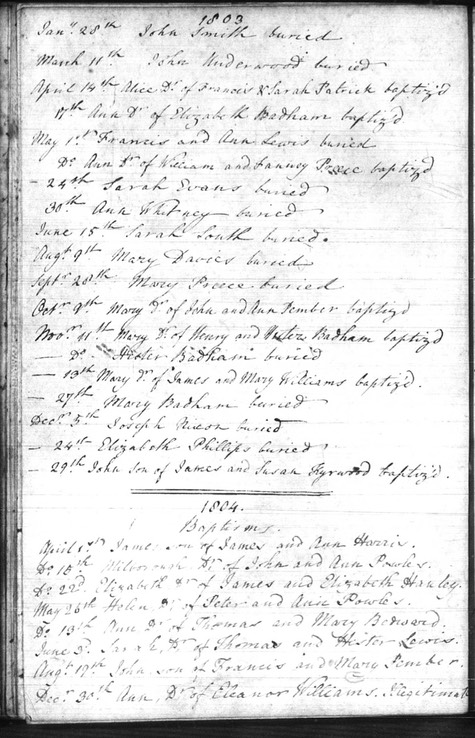 1803
Jany 28th John Smith buried
March 11th John Underwood buried
April 14th Alice Dr. of Francis & Sarah Patrick baptiz'd
17th Ann Dr of Elizabeth Badham baptiz'd
May 1st Francis and Ann Lewis buried
Do. Ann Dr of William and Fanney Preece baptiz'd
— 24th Sarah Evans buried
30th Ann Whitney buried
June 15th Sarah South buried.
Augt 9th Mary Davies buried
Septr 28th Mary Preece buried
Octr 9th Mary Dr. of John and Ann Pember baptiz'd
Novr 11th Mary Dr. of Henry and Hester Badham baptiz'd
— Do — Hester Badham buried
— 13th Mary Dr. of James and Mary Williams baptiz'd.
— 27th Mary Badham buried
Decr 5th Joseph Nixon buried
— 24th Elizabeth Phillips buried
— 29th John Son of James and Susan baptiz'd.
1804.
Baptisms.
April 1st James son of James and Ann Harris.
Do 15th Milborough Dr of John and Ann Powles.
Do 22d. Elizabeth Dr of James and Elizabeth Hanley.
May 26th Helen Dr of Peter and Ann Powles.
Do 13th Ann Dr of Thomas and Mary
June 3d. Sarah, Dr of Thomas and Hester Lewis.
Augt 19th John son of Francis and Mary Pember.
Decr 30th Ann, Dr of Eleanor Williams. Illegitimate